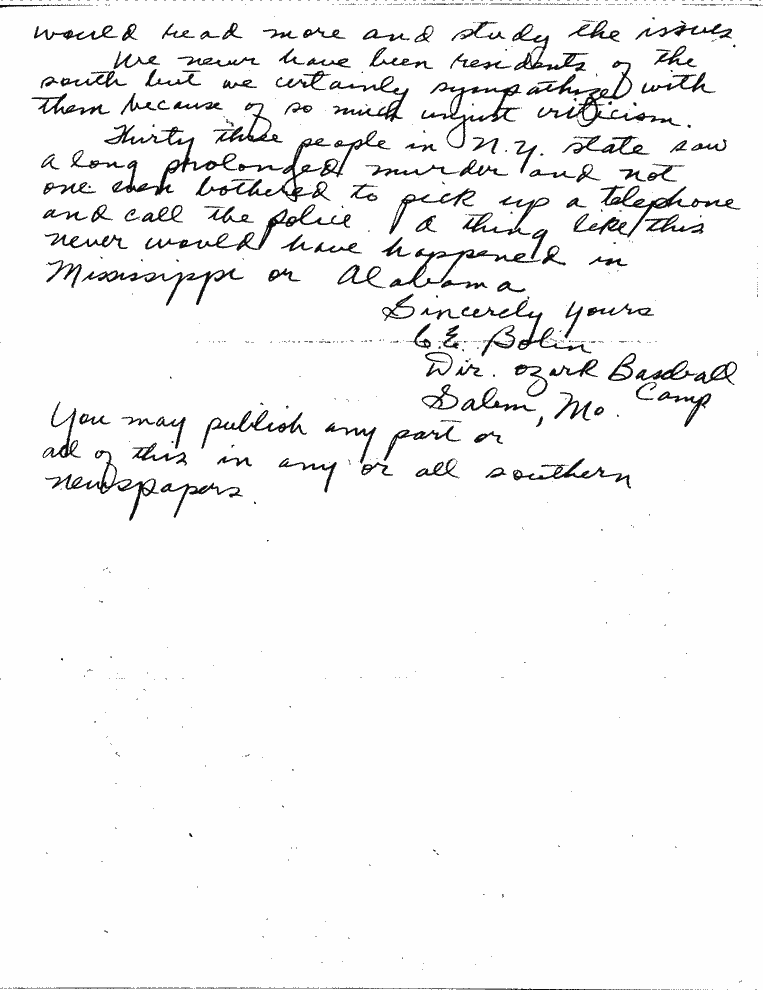 would read more and study the issues.
We never have been residents of the
south but we certainly sympathized with
them because of so much unjust criticism.
Thirty three people in N.Y. state saw
a long prolonged murder and not
one even bothered to pick up a telephone
and call the police. A thing like this
never would have happened in
Mississippi or Alabama
Sincerely yours
C.E. Bolin
Dir. Ozark Baseball
Camp
Salem, Mo.
You may publish any part or
all of this in any or all southern
newspapers.